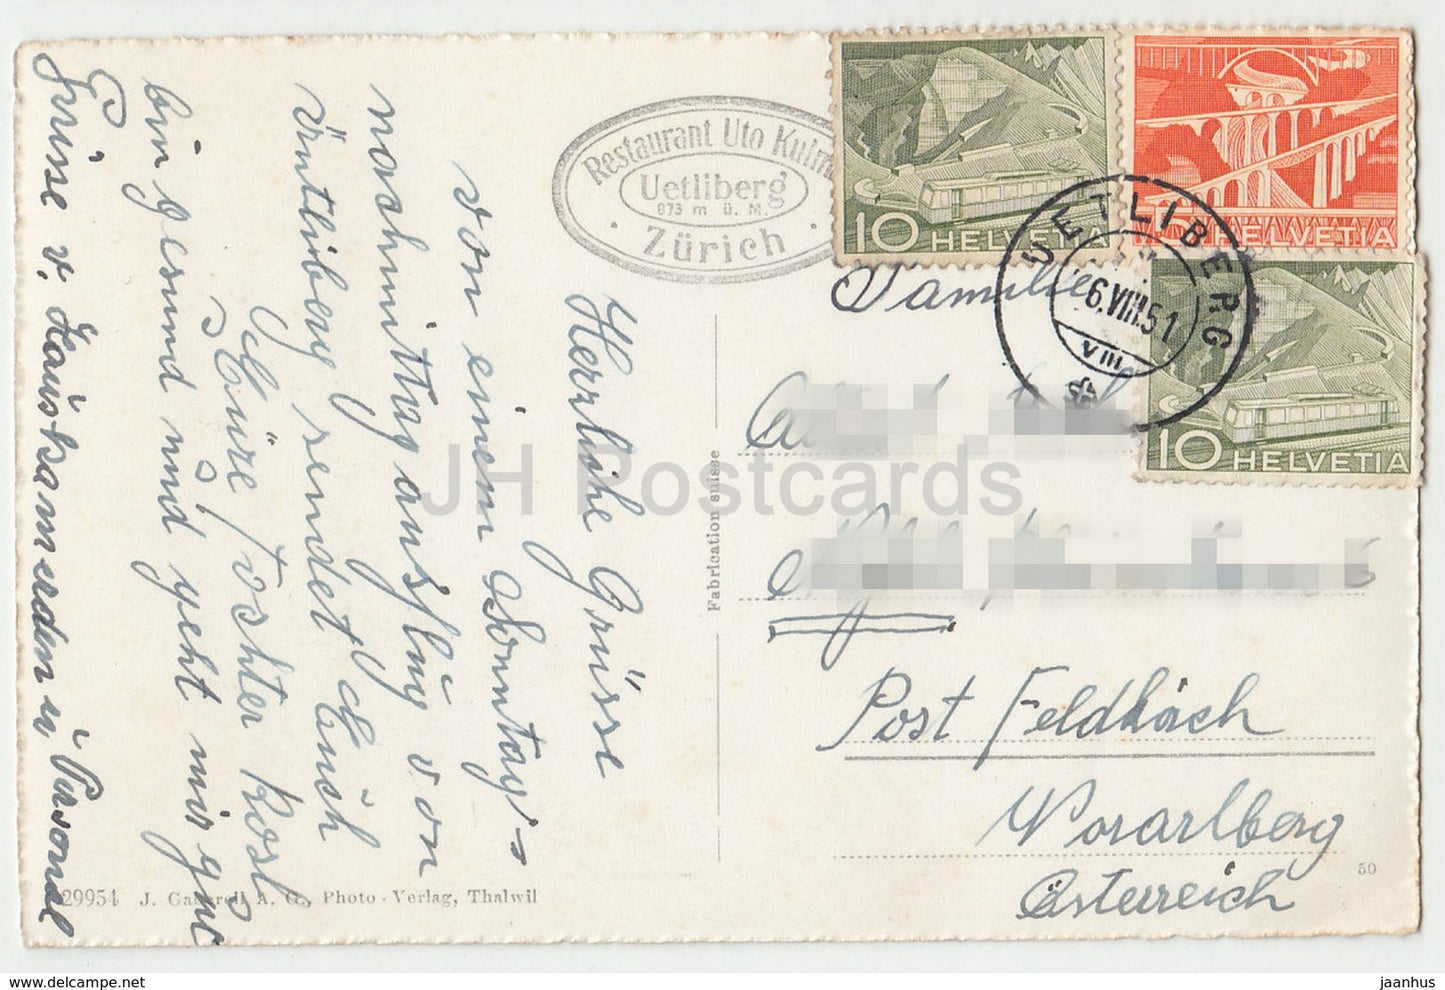 Restaurant Uto Kulm
Uetliberg
873 m ü. M.
Zürich
10 HELVETIA
5 HELVETIA
10 HELVETIA
UETLIBERG
6.VIII.51
VIII
Herzliche Grüsse
von einem Sonntags-
nachmittag ausflug von
Üntliberg sendet Euch
Eüre Tochter Rosl
bin gesund und geht mir gut
Grüsse v. Hauskamerden u Personal
Familie
Post Feldkirch
Vorarlberg
Österreich
Fabrication suisse
29954 J. Gaberell A. G., Photo-Verlag, Thalwil
50
JH Postcards
www.delcampe.net
jaanhus